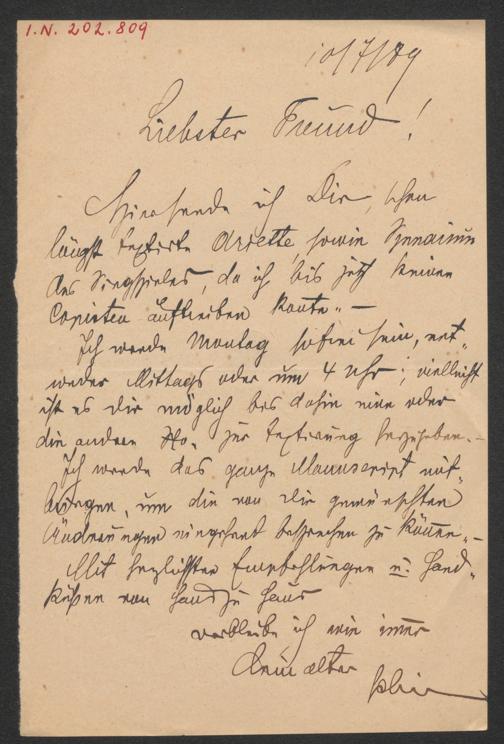 I.N. 202.809
10/7/89
Liebster Freund!
Hier sende ich Dir, schon
längst textirte Ariette, sowie
des Singspieles, da ich bis jetzt keinen
Copisten auftreiben konte. –
Ich werde Montag so frei sein, ent-
weder Mittags oder um 4 Uhr; vielleicht
ist es dir möglich bis dahin eine oder
die andere No. zur Textirung herzugeben. –
Ich werde das ganze Manuscript mit-
bringen, um die von Dir gewünschten
Änderungen eingehend besprechen zu können. –
Mit herzlichsten Empfehlungen u: Hand-
küßen von Haus zu Haus
verbleibe ich wie immer
Dein alter